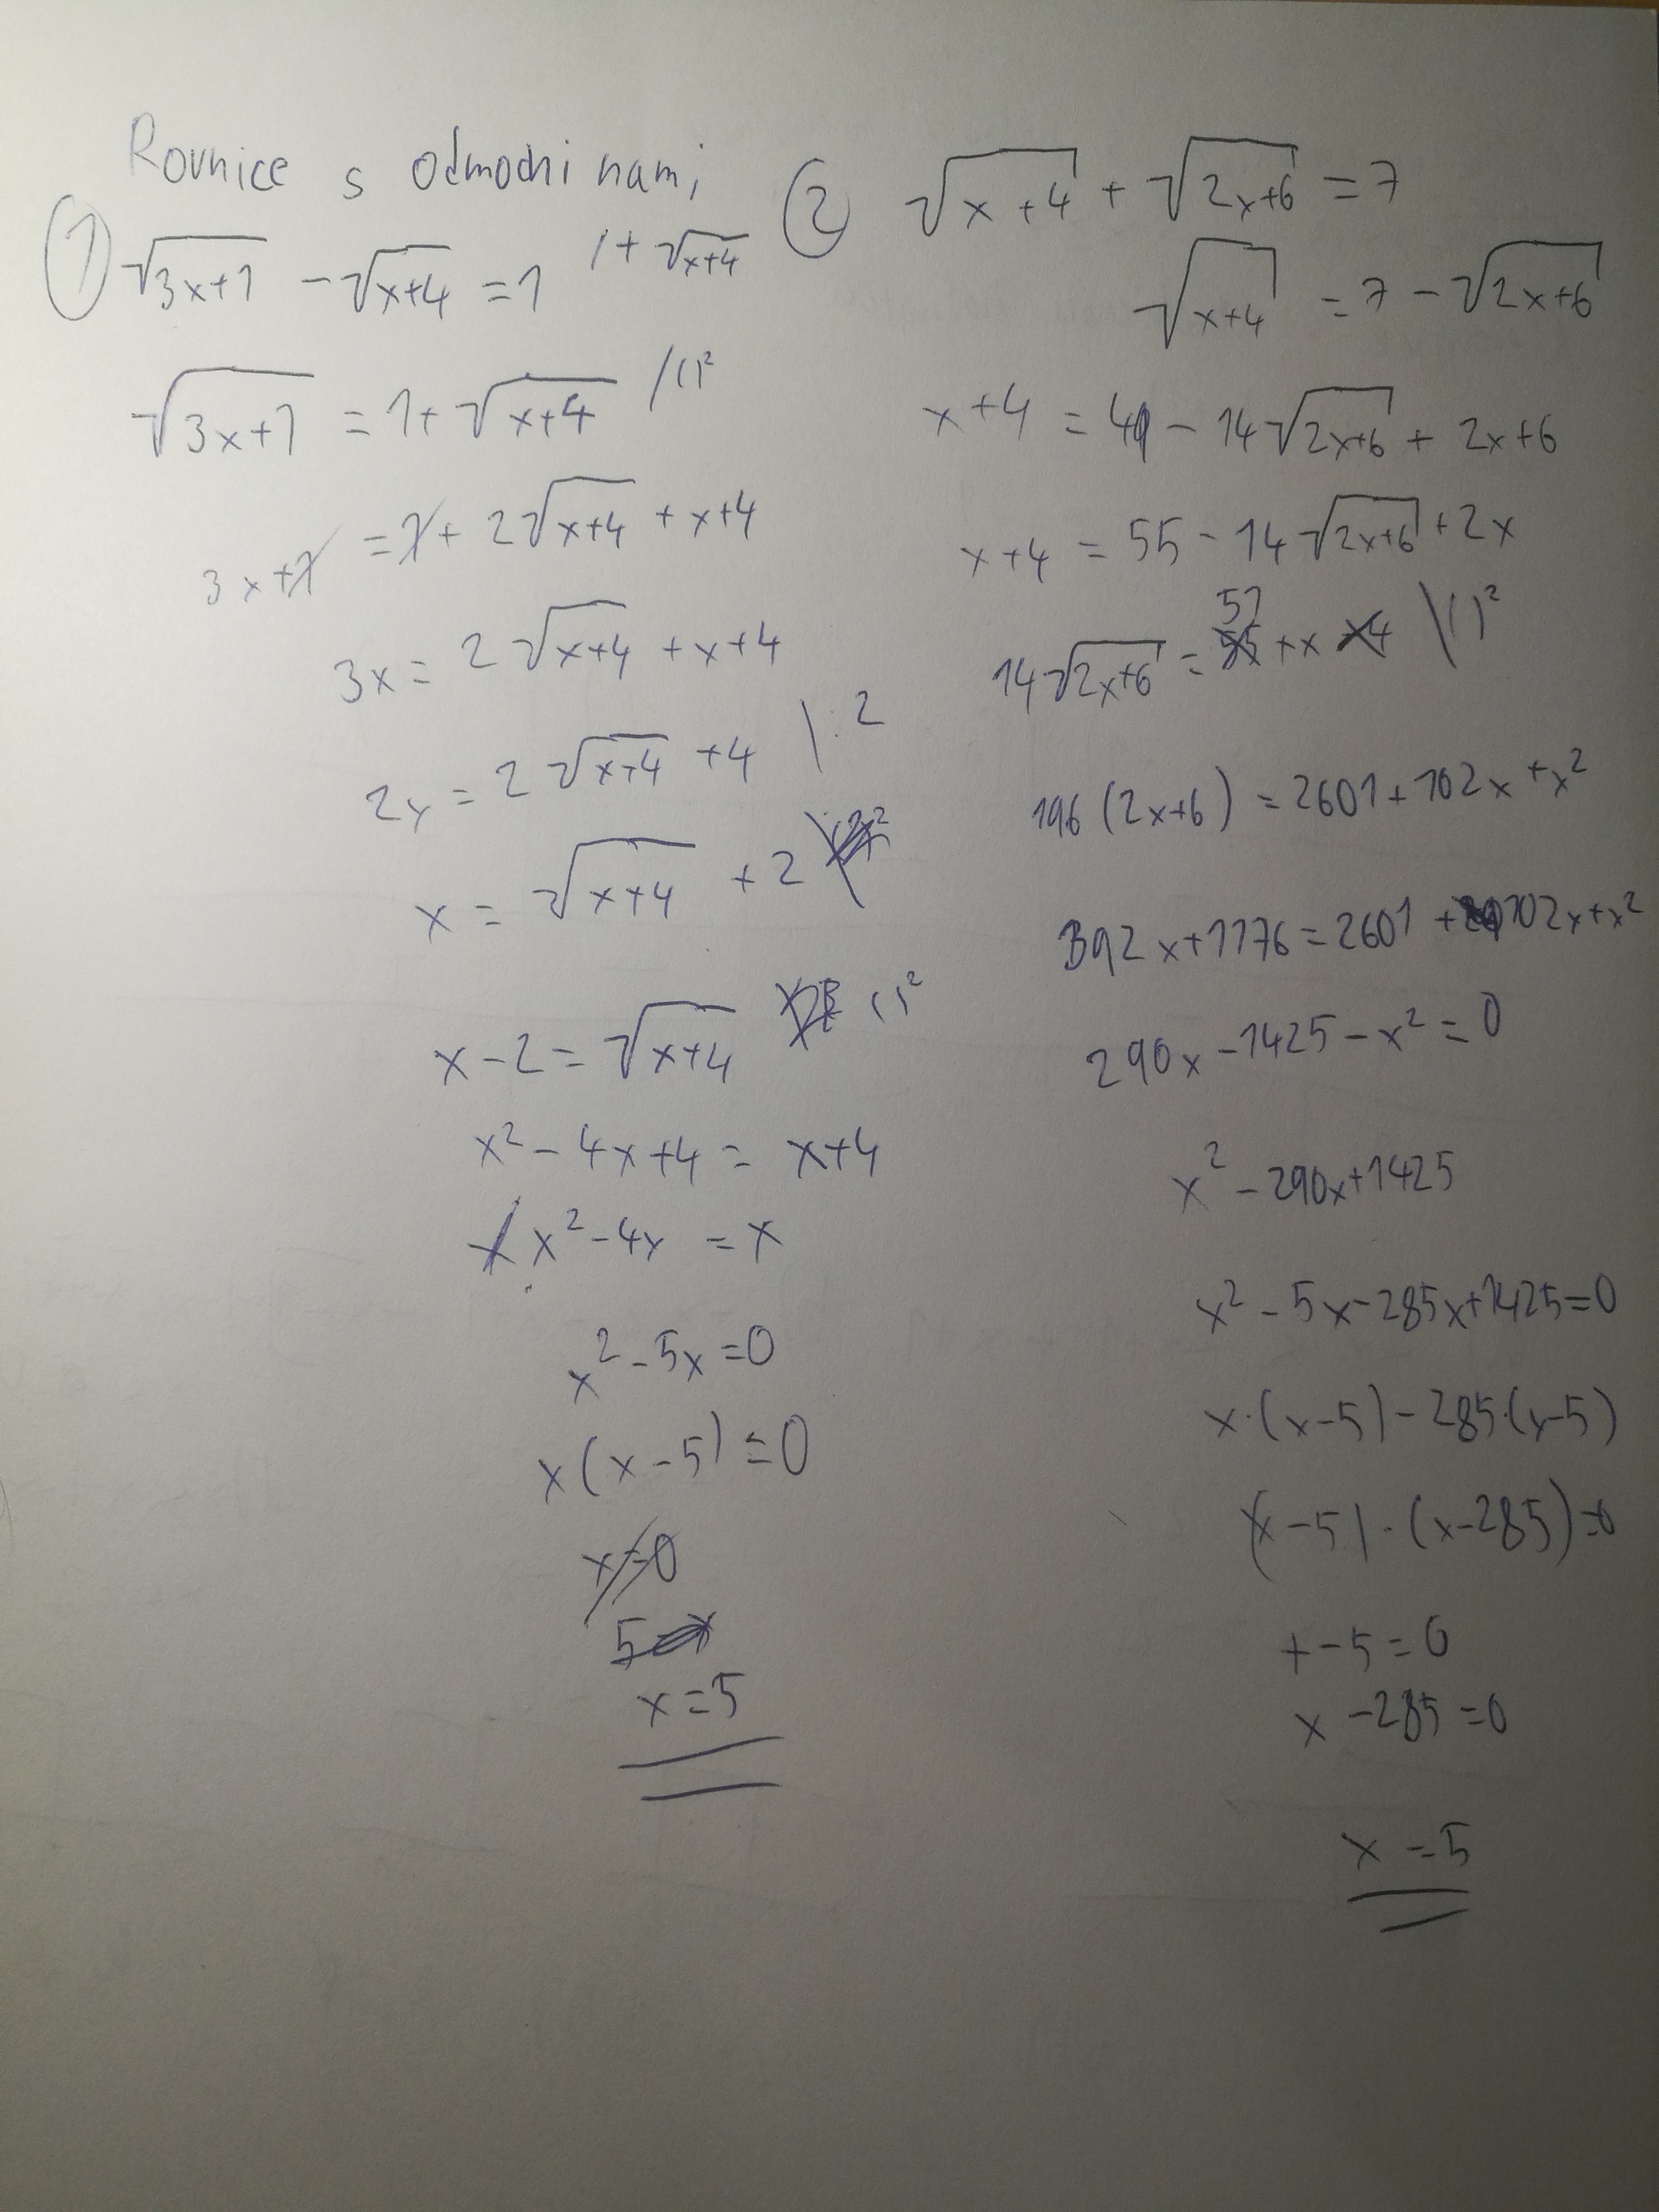 Rovnice s odmocninami
① √3x+1 - √x+4 = 1 /+ √x+4
√3x+1 = 1+ √x+4 /()²
3x+1 = 1+ 2√x+4 + x+4
3x = 2√x+4 + x+4
2x = 2√x+4 +4 \:2
x = √x+4 + 2
x-2 = √x+4 ()²
x² - 4x+4 = x+4
x² - 4x = x
x² - 5x = 0
x(x-5) = 0
x=0
5
x=5
② √x+4 + √2x+6 = 7
√x+4 = 7 - √2x+6
x+4 = 49 - 14√2x+6 + 2x+6
x+4 = 55 - 14√2x+6 + 2x
51
14√2x+6 = 55 +x -4 \()²
196 (2x+6) = 2601 + 102x + x²
392x+1176 = 2601 + 102x+x²
290x -1425 - x² = 0
x² - 290x+1425
x² - 5x - 285x+1425=0
x·(x-5) - 285·(x-5)
(x-5)·(x-285)=0
x-5=0
x-285=0
x=5